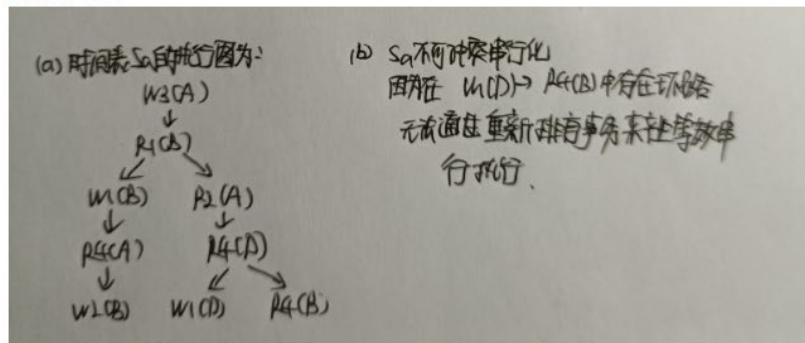 (a) 时间表Sa的执行图为:
W3(A)
↓
R1(B)
↙ ↘
W1(B) R2(A)
↓ ↓
R4(A) R4(D)
↓ ↙ ↘
W2(B) W1(D) R4(B)
(b) Sa不可冲突串行化
因为在 W1(D)→R4(B)中存在环路
无法通过重新排有事务来 等效串
行执行.